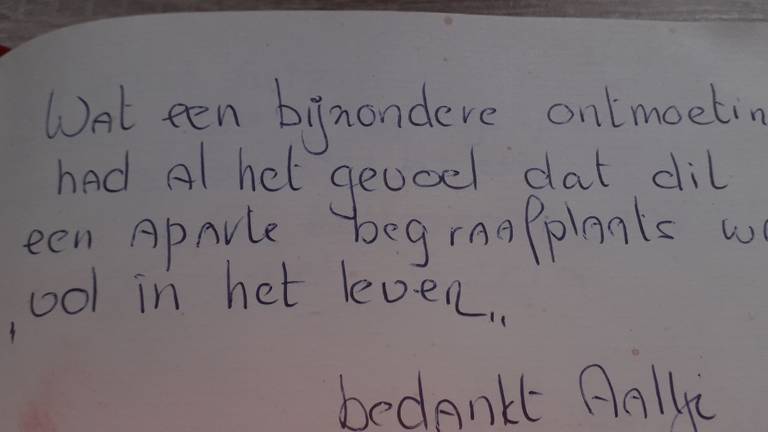 Wat een bijzondere ontmoetin
had al het gevoel dat dit
een aparte begraafplaats wa
vol in het leven,,
bedankt Aaltje